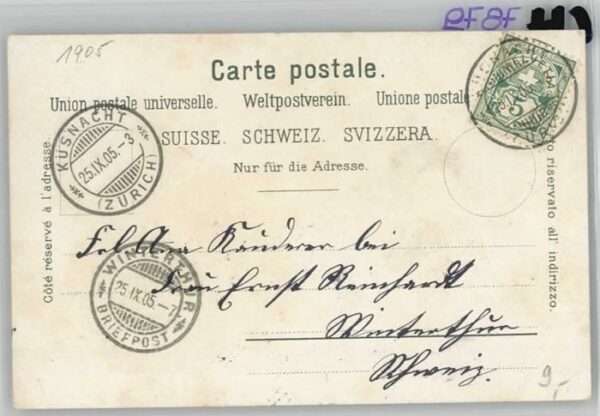 1905
Carte postale.
Union postale universelle. Weltpostverein. Unione postale
SUISSE. SCHWEIZ. SVIZZERA.
Nur für die Adresse.
Côté réservé à l'adresse.
riservato all' indirizzo.
KÜSNACHT
25.IX.05.-3
(ZÜRICH)
WINTERTHUR
25.IX.05.-7
BRIEFPOST
5
Frl. Anna Kauderer bei
Frau Ernst Reinhardt
Winterthur
Schweiz.
9.-